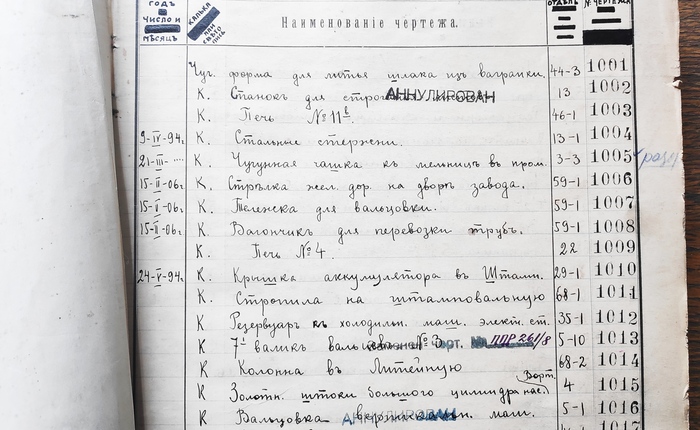 ГОДЪ ЧИСЛО И МѢСЯЦЪ КАЛЬКА ИЛИ Наименованіе чертежа. ОТДѢЛЪ № ЧЕРТЕЖА
Чуг. форма для литья шлака изъ вагранки. 44-3 1001
К. Станокъ для АННУЛИРОВАН 13 1002
К. Печь № 11 46-1 1003
9-IV-94г. К. Стальные стержни. 13-1 1004
21-III- К. Чугунная чашка къ мельницѣ въ пром. 3-3 1005
15-II-06г. К. Стрѣлка жел. дор. на дворѣ завода. 59-1 1006
15-V-06г. К. Тележка для вальцовки. 59-1 1007
15-II-06г. К. Вагончикъ для перевозки трубъ. 59-1 1008
К. Печь № 4. 22 1009
24-V-94г. К. Крышка аккумулятора въ Штамп. 29-1 1010
К. Стропила на штамповальную 68-1 1011
К Резервуаръ къ холодильн. маш. элект. ст. 35-1 1012
К 7 валикъ № 3 ППР 261/8 5-10 1013
К Колонна въ Литейную 68-2 1014
К Золотн. штоки большого цилиндра 4 1015
К Вальцовка АННУЛИРОВАН маш. 5-1 1016
1017